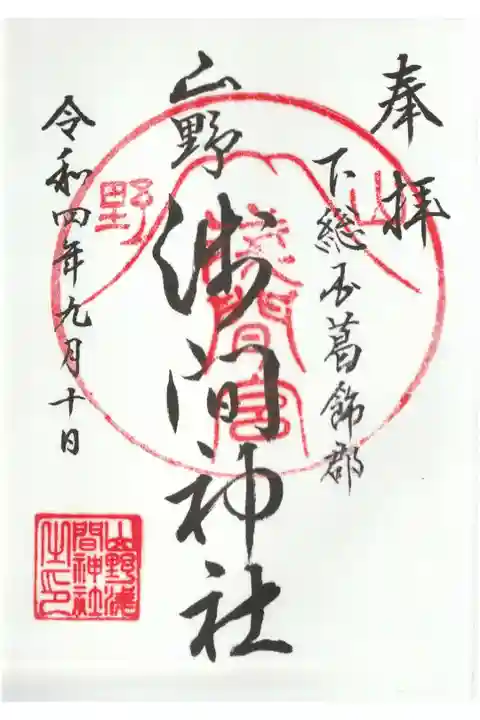 奉拝
下総国葛飾郡
山野浅間神社
令和四年九月十日
山野
浅間宮
山野浅間神社之印